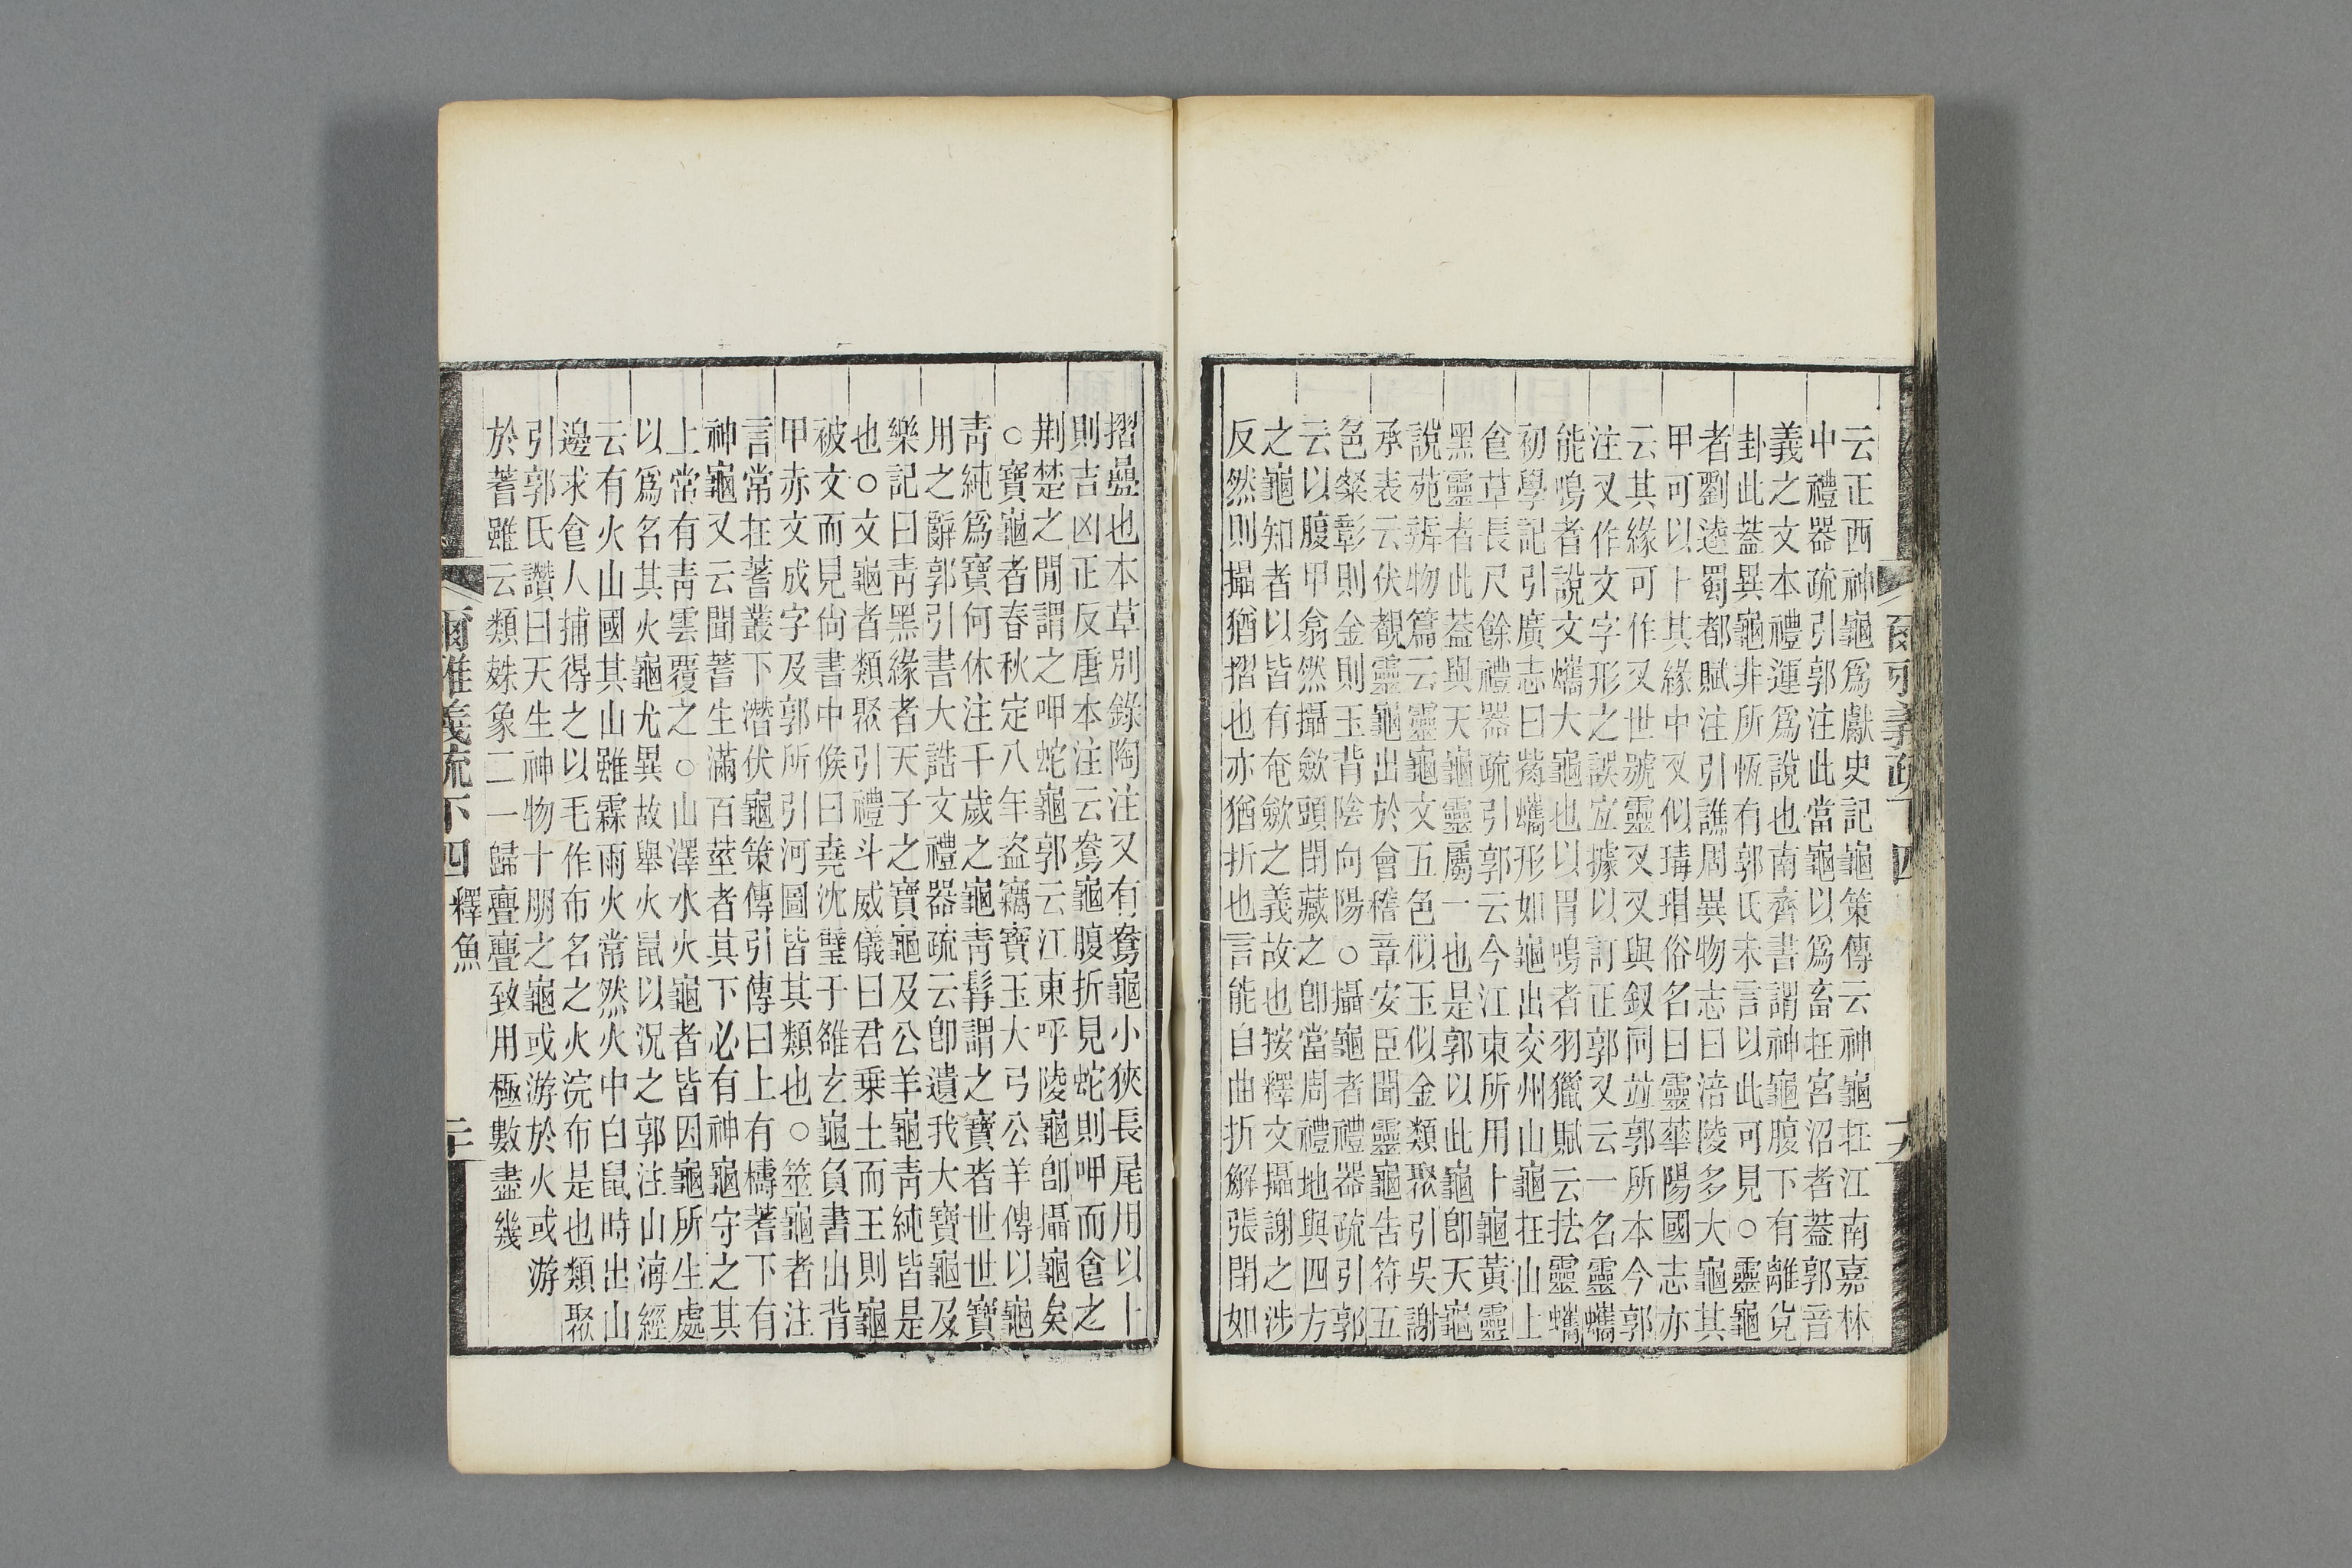 云正西神龜爲獻史記龜策傳云神龜在江南嘉林
中禮器疏引郭注此當龜以爲畜在宮沼者蓋郭音
義之文本禮運爲說也南齊書謂神龜腹下有離兌
卦此蓋異龜非所恆有郭氏未言以此可見○靈龜
者劉逵蜀都賦注引譙周異物志曰涪陵多大龜其
甲可以卜其緣中叉似瑇瑁俗名曰靈華陽國志亦
云其緣可作叉世號靈叉叉與釵同竝郭所本今郭
注叉作文字形之誤宜據以訂正郭又云一名靈蠵
能鳴者說文蠵大龜也以胃鳴者羽獵賦云抾靈蠵
初學記引廣志曰觜蠵形如龜出交州山龜在山上
食草長尺餘禮器疏引郭云今江東所用卜龜黃靈
黑靈者此葢與天龜靈屬一也是郭以此龜卽天龜
說苑辨物篇云靈龜文五色似玉似金類聚引吳謝
承表云伏覩靈龜出於會稽章安臣聞靈龜告符五
色粲彰則金則玉背陰向陽○攝龜者禮器疏引郭
云以腹甲翕然攝歛頭閉藏之卽當周禮地與四方
之龜知者以皆有奄歛之義故也按釋文攝謝之涉
反然則攝猶摺也亦猶折也言能自曲折解張閉如
爾雅義疏下四
十九
摺疊也本草別錄陶注又有鴦龜小狹長尾用以卜
則吉凶正反唐本注云鴦龜腹折見蛇則呷而食之
荆楚之閒謂之呷蛇龜郭云江東呼陵龜卽攝龜矣
○寶龜者春秋定八年盗竊寶玉大弓公羊傳以龜
青純爲寶何休注千歲之龜青髯謂之寶者世世寶
用之辭郭引書大誥文禮器疏云卽遺我大寶龜及
樂記曰青黑緣者天子之寶龜及公羊龜青純皆是
也○文龜者類聚引禮斗威儀曰君乗土而王則龜
被文而見尙書中候曰堯沈璧于雒玄龜負書出背
甲赤文成字及郭所引河圖皆其類也○筮龜者注
言常在蓍叢下潛伏龜策傳引傳曰上有檮蓍下有
神龜又云聞蓍生滿百莖者其下必有神龜守之其
上常有青雲覆之○山澤水火龜者皆因龜所生處
以爲名其火龜尤異故舉火鼠以況之郭注山海經
云有火山國其山雖霖雨火常然火中白鼠時出山
邊求食人捕得之以毛作布名之火浣布是也類聚
引郭氏讚曰天生神物十朋之龜或游於火或游
於蓍雖云類殊象二一歸亹亹致用極數盡幾
爾雅義疏下四 釋魚
二十